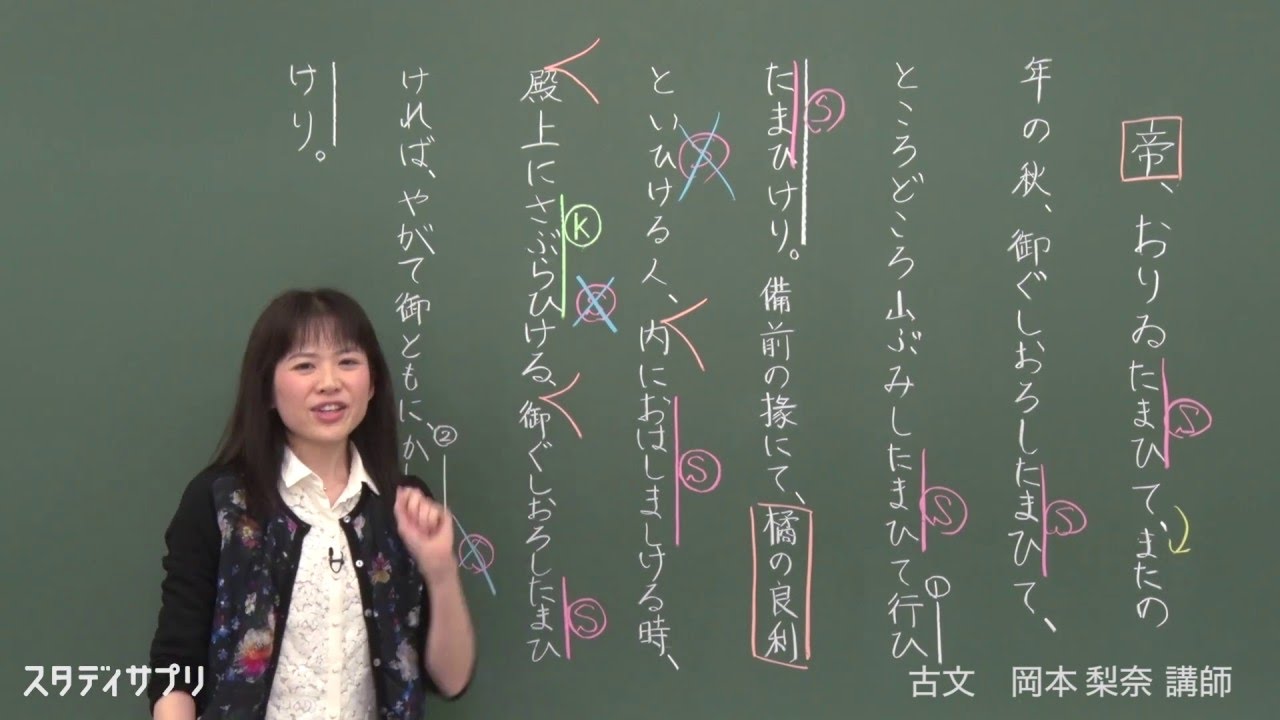 帝、おりゐたまひて、またの
年の秋、御ぐしおろしたまひて、
ところどころ山ぶみしたまひて行ひ
たまひけり。備前の掾にて、橘の良利
といひける人、内におはしましける時、
殿上にさぶらひける、御ぐしおろしたまひ
ければ、やがて御ともに、か
けり。
S
S
S
①
S
S
S
K
S
S
②
S
スタディサプリ
古文 岡本 梨奈 講師